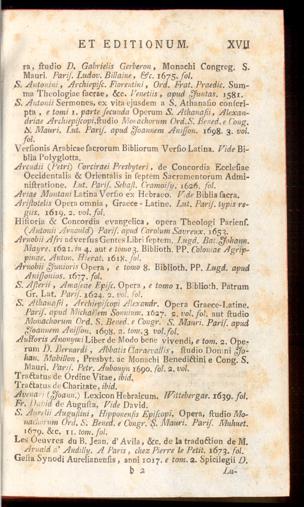 ET EDITIONUM. XVII
ra, studio D. Gabrielis Gerberon, Monachi Congreg. S.
Mauri. Paris. Ludov. Billaine, &c. 1675. fol.
S. Antonini, Archiepisc. Florentini, Ord. Frat. Praedic. Sum-
ma Theologiae sacrae, &c. Venetiis, apud Juntas. 1581.
S. Antonii Sermones, ex vita ejusdem a S. Athanasio conscri-
pta, e tomi 1. parte secunda Operum S. Athanasii, Alexan-
driae Archiepiscopi, studio Monachorum Ord. S. Bened. e Cong.
S. Mauri. Lut. Paris. apud Joannem Anisson. 1698. 3. vol.
fol.
Versionis Arabicae sacrorum Bibliorum Versio Latina. Vide Bi-
blia Polyglotta.
Arcudii (Petri) Corciraei Presbyteri, de Concordia Ecclesiae
Occidentalis & Orientalis in septem Sacramentorum Admi-
nistratione. Lut. Paris. Sebast. Cramoisy. 1626. fol.
Ariae Montani Latina Versio ex Hebraeo. Vide Biblia sacra.
Aristotelis Opera omnia, Graece-Latine. Lut. Paris. typis re-
giis. 1619. 2. vol. fol.
Historia & Concordia evangelica, opera Theologi Parisiens.
(Antonii Arnauld) Paris. apud Carolum Savreux. 1653.
Arnobii Afri adversus Gentes Libri septem. Lugd. Bat. Johann.
Maire. 1621. in 4. aut e tomo 3. Biblioth. PP. Coloniae Agrip-
pinae. Anton. Hierat. 1618. fol.
Arnobii Junioris Opera, e tomo 8. Biblioth. PP. Lugd. apud
Anissonios. 1677. fol.
S. Asterii, Amaseae Episc. Opera, e tomo 1. Biblioth. Patrum
Gr. Lat. Paris. 1624. 2. vol. fol.
S. Athanasii, Archiepiscopi Alexandr. Opera Graece-Latine.
Paris. apud Michaelem Sonnium. 1627. 2. vol. fol. aut studio
Monachorum Ord. S. Bened. e Congr. S. Mauri. Paris. apud
Joannem Anisson. 1698. 2. tom. 3. vol. fol.
Authoris Anonymi Liber de Modo bene vivendi, e tom. 2. Ope-
rum D. Bernardi, Abbatis Claraevallis, studio Domni Jo-
han. Mabillon, Presbyt. ac Monachi Benedictini e Cong. S.
Mauri. Paris. Petr. Aubouyn 1690. fol. 2. vol.
Tractatus de Ordine Vitae, ibid.
Tractatus de Charitate, ibid.
Avenarii (Joann.) Lexicon Hebraicum. Wittebergae. 1639. fol.
F. David de Augusta. Vide David.
S. Aurelii Augustini, Hipponensis Episcopi, Opera, studio Mo-
nachorum Ord. S. Bened. e Congr. S. Mauri. Paris. Muhuet.
1679. &c. 11. tom. fol.
Les Oeuvres du B. Jean d'Avila, &c. de la traduction de M.
Arnauld d'Andilly. A Paris, chez Pierre le Petit. 1673. fol.
Gesta Synodi Aurelianensis, anni 1017. e tom. 2. Spicilegii D.
b 2 Lu-